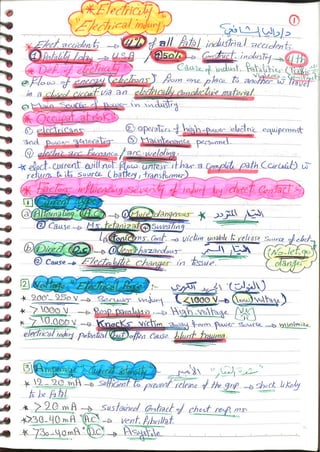 * Electricity
Electrical injury
①
* Elect. accidents → 4% of all fatal industrial accidents.
Fatality/day → U.S.A → 50% → Construct. industry → 4th
Cause of indust. Fatalities
* Def. of electricity
Flow of energy (electrons) from one place to another i.e travel
in a closed circuit via an electrically conductive material
* Main source of power in industry.
* Occup. at risk:
① electricians ② operators of high-power electric equipement
and power generators ③ Maintenance personnel
④ electric arc furnace / arc welding
* elect. current will not flow unless it have a complete path (circuit) to
return to its source (battery, transformer)
* Factors influencing severity of injury by elect. Contact:
1 Current Type:
a) Alternating (AC) → ① More dangerous * التيار المتردد
② Cause Ms. tetanization + sweating
Tonic ms. Cont → victim unable to release source of elect.
b) Direct (DC) → ① Less hazardous التيار المستمر
② Cause → Electrolytic changes in tissue. No let-go danger
2 Voltage "Electrical Force" الجهد الكهربى (الفولت)
* 200 - 250 V → Serious injury < 1000 V → (low) Voltage)
* > 1000 V → Resp. paralysis → High voltage
* > 10,000 V → Knocks victim away from power source → minimize
electrical injury potential but often cause blunt trauma
3 Amperage "Current intensity"
* 12 - 20 mA → sufficient to prevent release of the grip → shock likely
to be fatal
* > 20 mA → sustained Contract of chest resp. ms.
* > 30-40 mA (AC) → vent. fibrillat.
* > 30-40 mA (DC) → Asystole